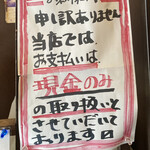 申し訳ありません
当店では
お支払いは
現金のみ
の取り扱いと
させていだいて
おります